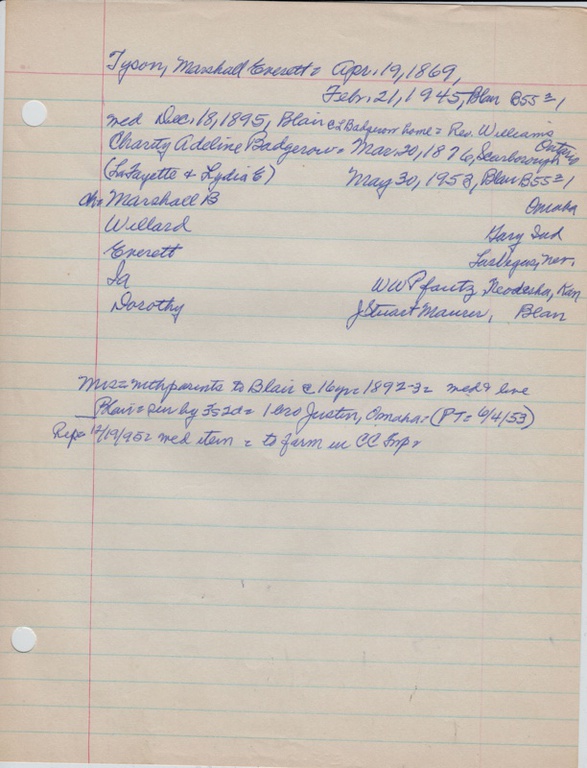 Tyson, Marshall Everett = Apr. 19, 1869,
Febr. 21, 1945, Blair B55 = 1
med Dec. 18, 1895, Blair @ L Badgerow home = Rev. Williams
Charity Adeline Badgerow = Mar. 20, 1876, Scarborough Ontario
(LaFayette & Lydia E) May 30, 1953, Blair B55 = 1
ch = Marshall B Omaha
Willard Gary Ind
Everett Las Vegas, Nev.
Ia W W Pfautz, Neodesha, Kan
Dorothy J Stuart Maurer, Blair
Mrs = with parents to Blair @ 16 yr = 1892-3 = med & live
Blair = sur by 3s 2d = 1 bro Justin, Omaha = (PT = 6/4/53)
Rep = 12/19/95 = med item = to farm in CC Twp =